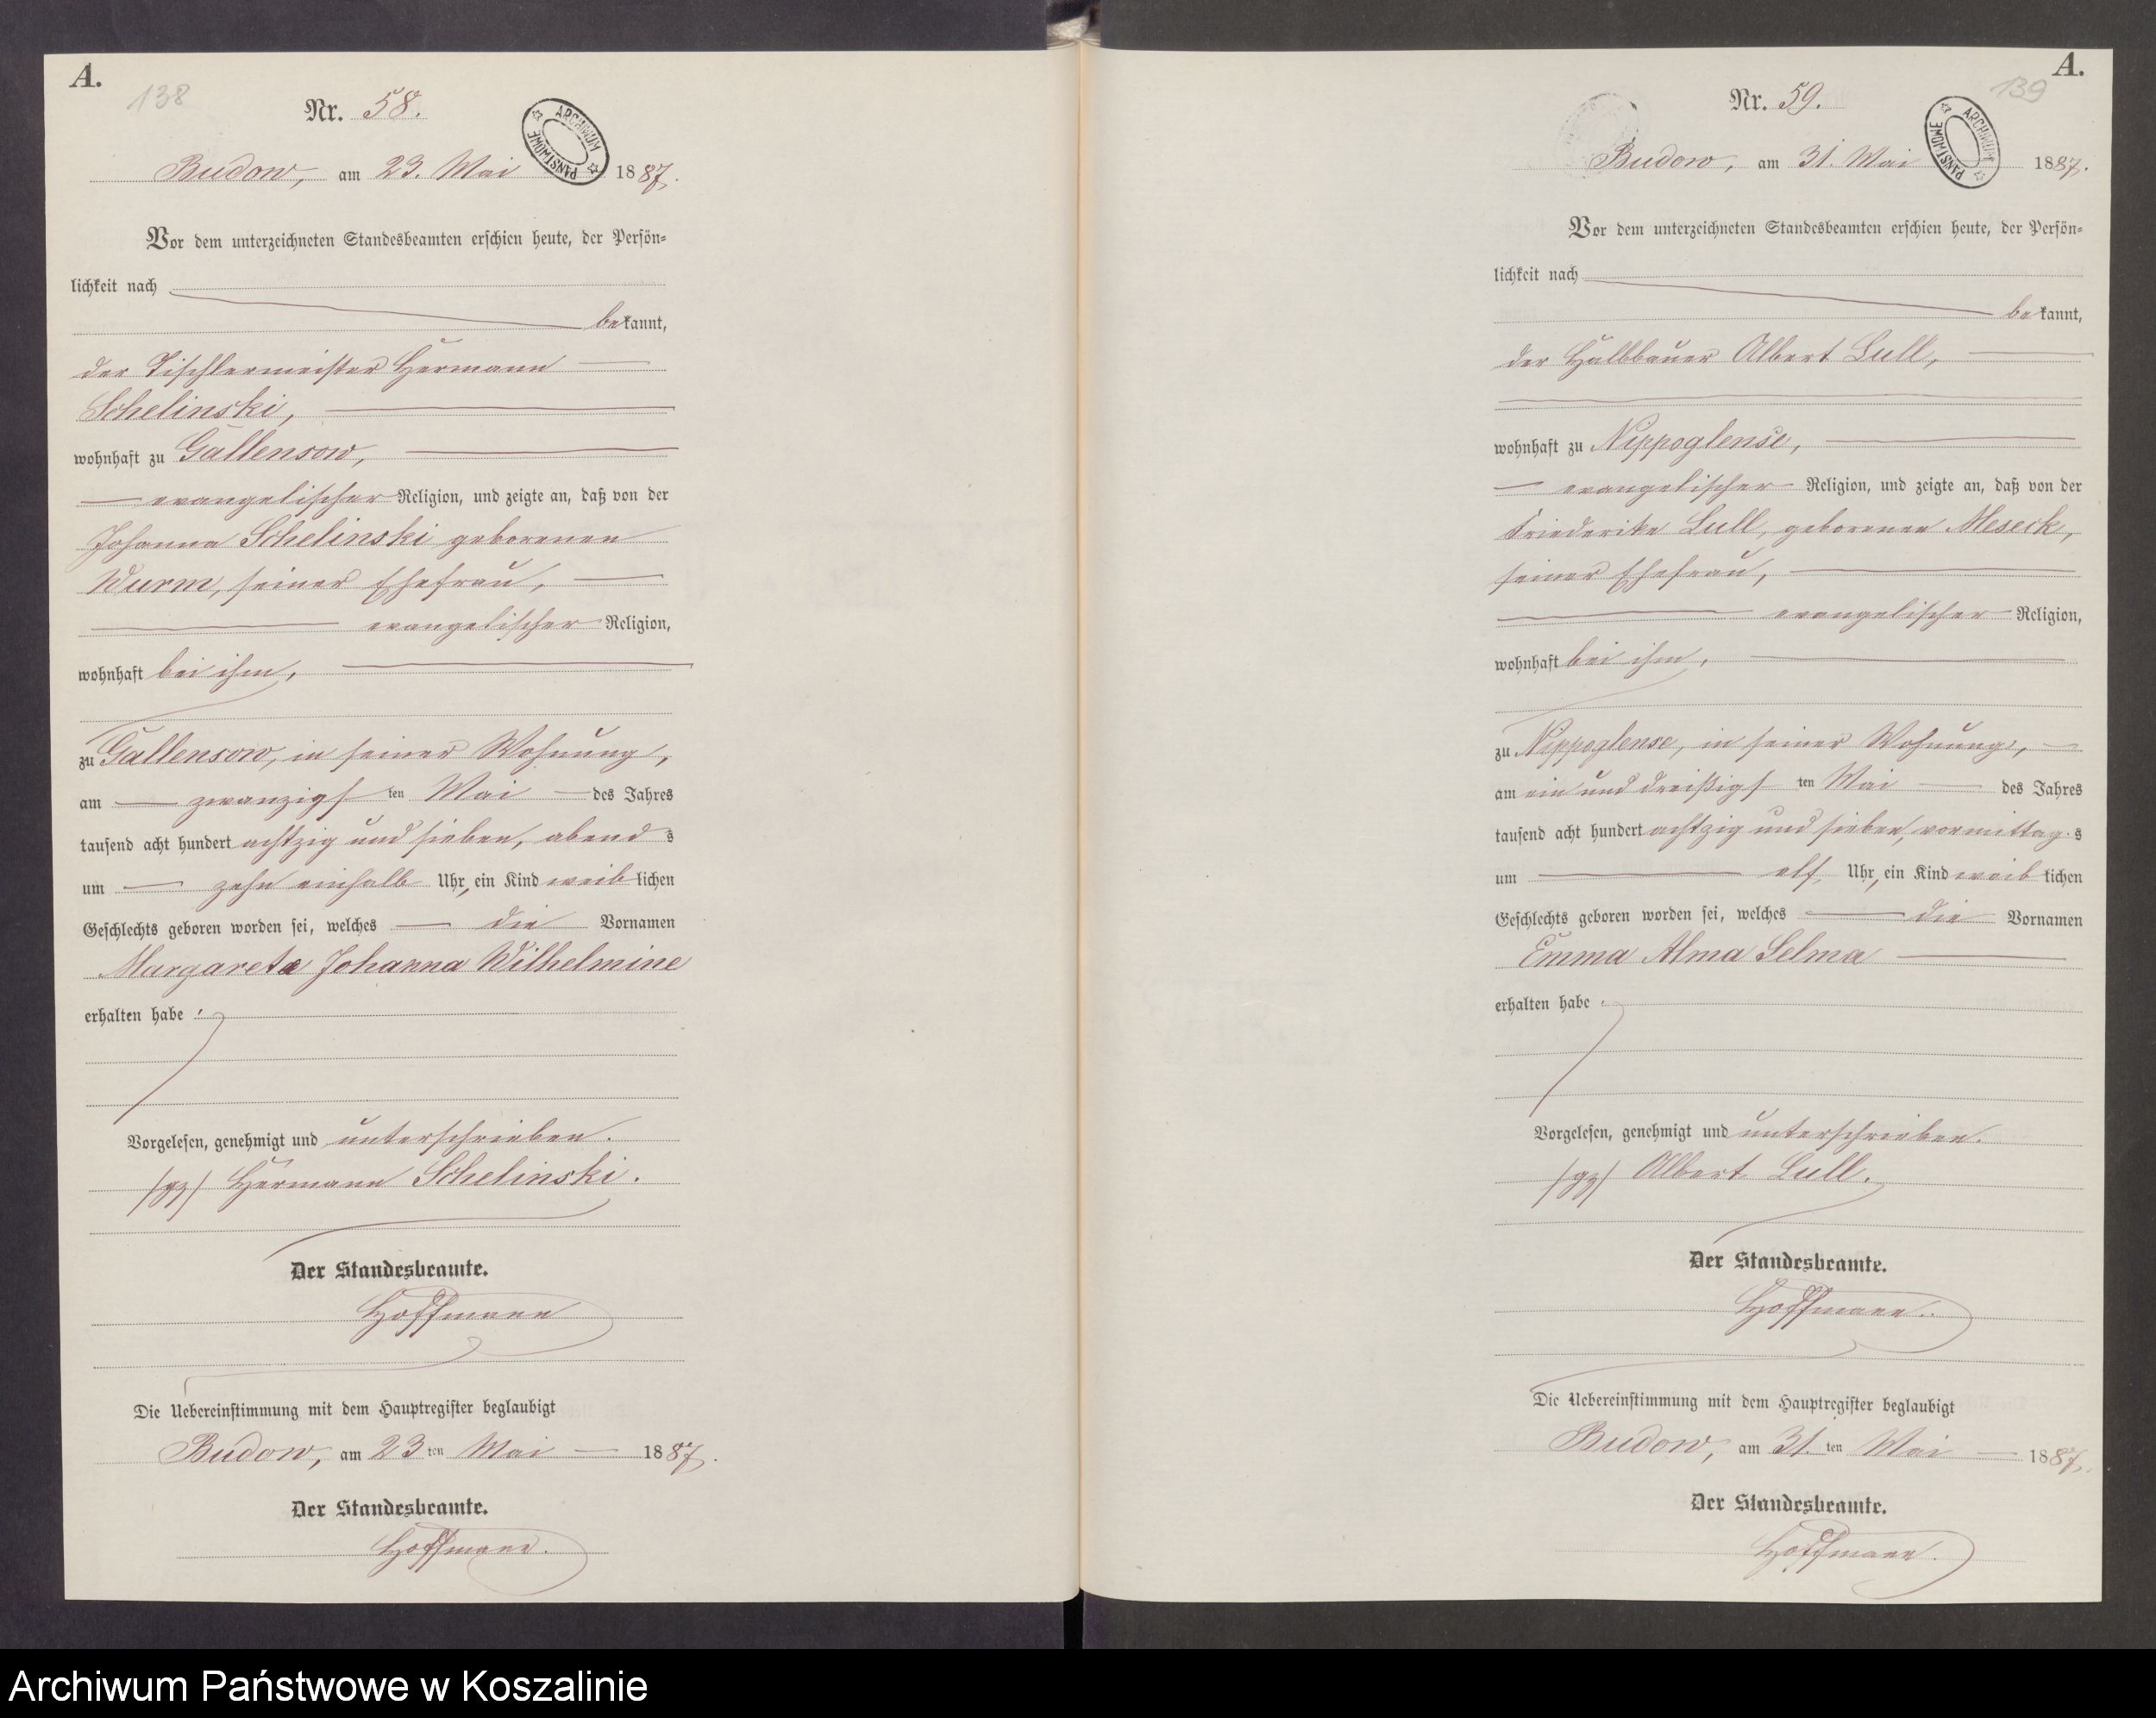 A.
138
Nr. 58.
ARCHIWUM PAŃSTWOWE
Budow, am 23. Mai 1887.
Vor dem unterzeichneten Standesbeamten erschien heute, der Persön-
lichkeit nach
bekannt,
der Tischlermeister Hermann
Schelinski,
wohnhaft zu Gallensow,
evangelischer Religion, und zeigte an, daß von der
Johanna Schelinski geborenen
Wurm, seiner Ehefrau,
evangelischer Religion,
wohnhaft bei ihm,
zu Gallensow, in seiner Wohnung,
am zwanzigsten Mai des Jahres
tausend acht hundert achtzig und sieben, abends
um zehn einhalb Uhr, ein Kind weiblichen
Geschlechts geboren worden sei, welches die Vornamen
Margarete Johanna Wilhelmine
erhalten habe.
Vorgelesen, genehmigt und unterschrieben.
/gz/ Hermann Schelinski.
Der Standesbeamte.
Hoffmann
Die Uebereinstimmung mit dem Hauptregister beglaubigt
Budow, am 23ten Mai 1887.
Der Standesbeamte.
Hoffmann.
A.
139
Nr. 59.
ARCHIWUM PAŃSTWOWE
Budow, am 31. Mai 1887.
Vor dem unterzeichneten Standesbeamten erschien heute, der Persön-
lichkeit nach
bekannt,
der Halbbauer Albert Lull,
wohnhaft zu Nippoglense,
evangelischer Religion, und zeigte an, daß von der
Friederike Lull, geborenen Meseck,
seiner Ehefrau,
evangelischer Religion,
wohnhaft bei ihm,
zu Nippoglense, in seiner Wohnung,
am ein und dreißigsten Mai des Jahres
tausend acht hundert achtzig und sieben, vormittags
um elf Uhr, ein Kind weiblichen
Geschlechts geboren worden sei, welches die Vornamen
Emma Alma Selma
erhalten habe.
Vorgelesen, genehmigt und unterschrieben.
/gz/ Albert Lull.
Der Standesbeamte.
Hoffmann.
Die Uebereinstimmung mit dem Hauptregister beglaubigt
Budow, am 31.ten Mai 1887.
Der Standesbeamte.
Hoffmann.
Archiwum Państwowe w Koszalinie